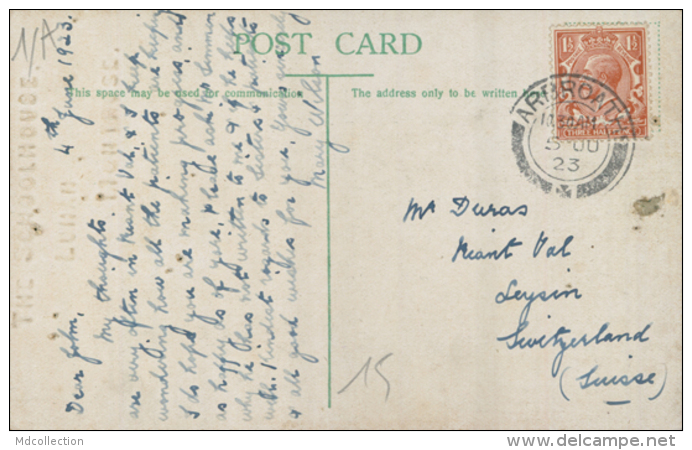 1/A
POST CARD
This space may be used for communication
The address only to be written
ARBROATH
10.30 AM
5 JU
23
THREE HALF
4th June 1923.
Dear John,
My thoughts
are very often in Riant Val, & I keep
wondering how all the patients are keeping
I do hope you are making progress and
as happy as of yore, please ask Mr
why he has not written to me of the
with kindest regards to Sisters &
& all good wishes for you, yours sincerely
Mary Wilson
Mr Duras
Riant Val
Leysin
Switzerland
(Suisse)
15
THE SCHOOLHOUSE
Mdcollection
delcampe.net